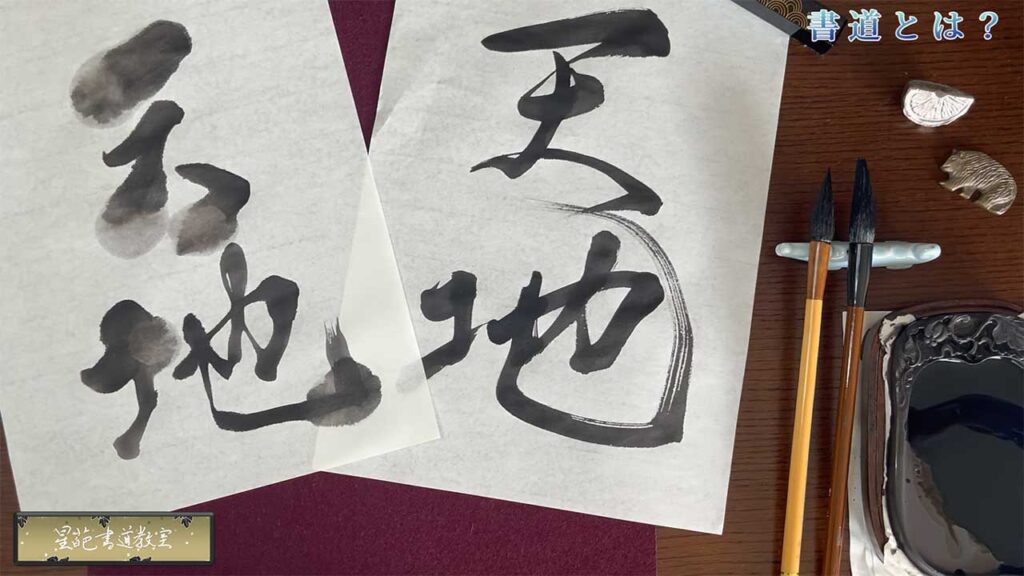 書道とは？
天地
天地
書道教室